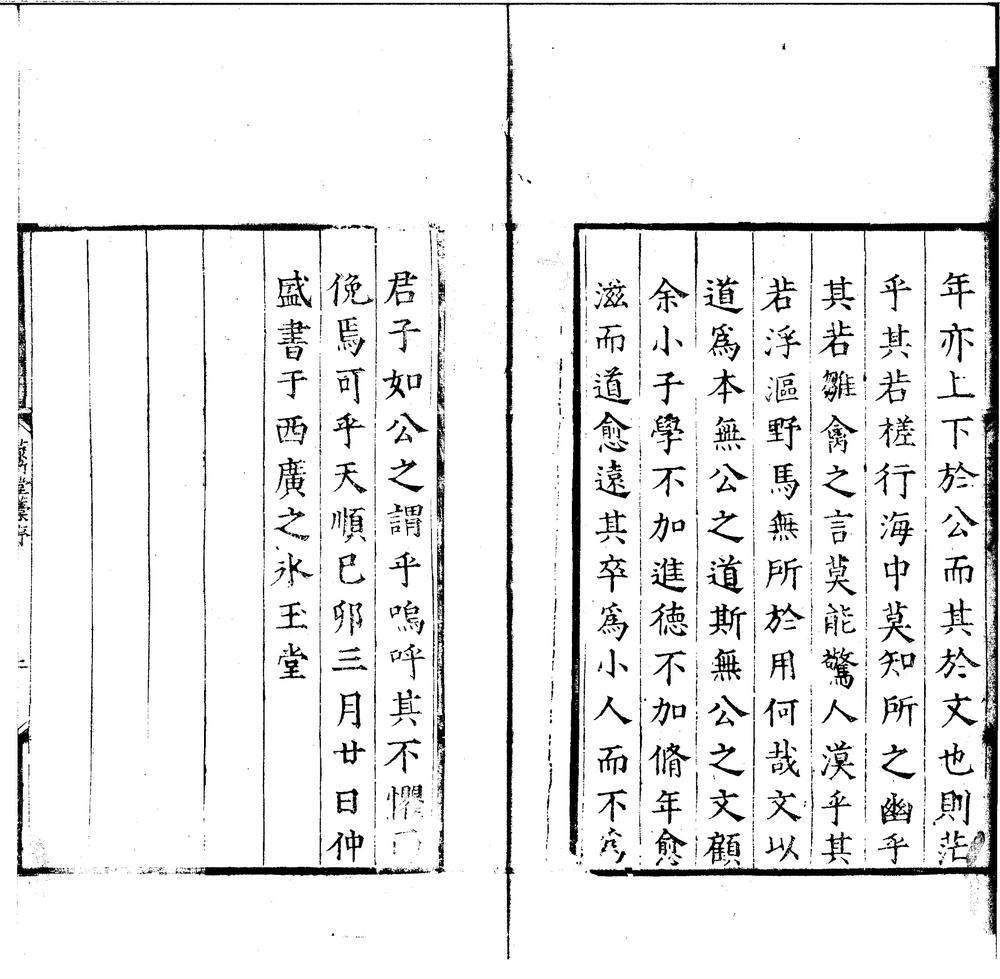 年亦上下於公而其於文也則茫
乎其若槎行海中莫知所之幽乎
其若雛禽之言莫能驚人漠乎其
若浮漚野馬無所於用何哉文以
道爲本無公之道斯無公之文顧
余小子學不加進德不加脩年愈
滋而道愈遠其卒爲小人而不
君子如公之謂乎嗚呼其不懼
俛焉可乎天順己卯三月廿日仲
盛書于西廣之氷玉堂
堂藁序